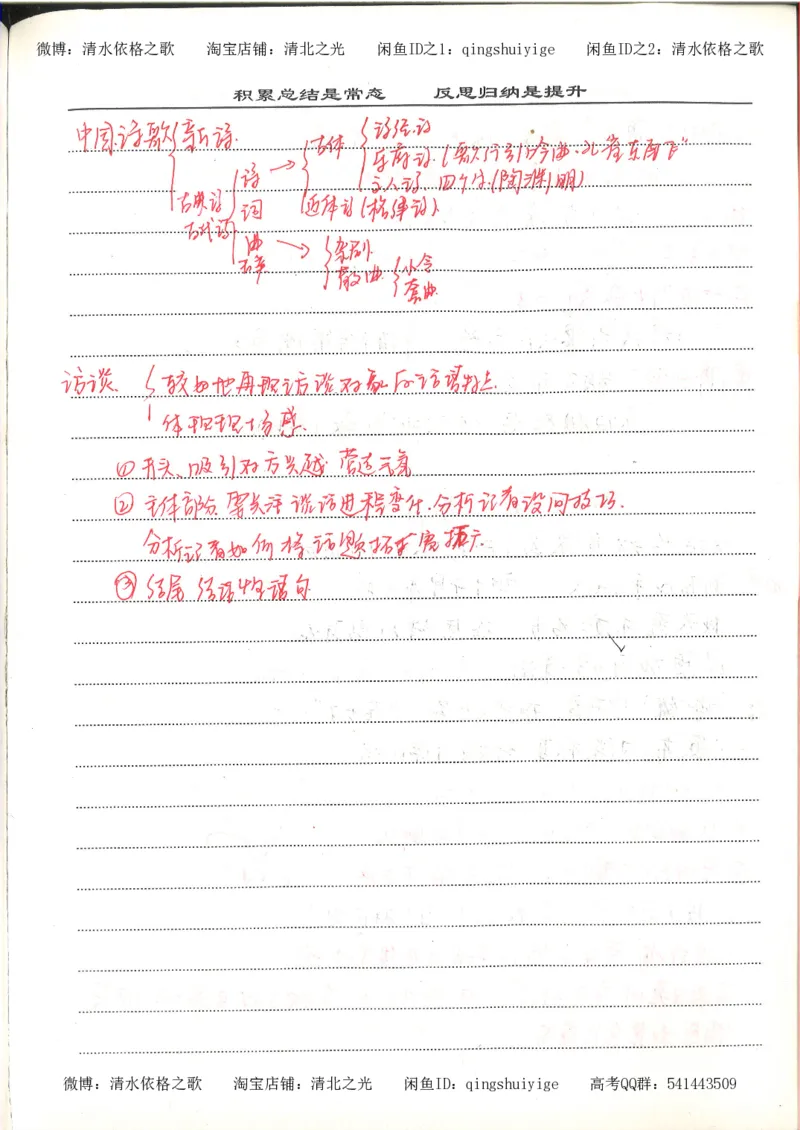 微博：清水依格之歌 淘宝店铺：清北之光 闲鱼ID之1：qingshuiyige 闲鱼ID之2：清水依格之歌
积累总结是常态 反思归纳是提升
中国诗歌 新诗
古体 诗经.诗
乐府诗.(歌行引吟曲.孔雀东南飞"
诗
文人诗. (陶渊明)
古典诗 词 近体诗(格律诗).
古代诗
曲 杂剧
辞 散曲 小令
套曲
访谈. 较好地再现访谈对象及话语特点.
体现现场感.
① 开头、吸引对方兴趣 营造元氛
② 主体部分 需关注谈话进程变化.分析记者设问技巧.
分析记者如何将话题拓扩展揭示
③ 结尾 结语性语句
微博：清水依格之歌 淘宝店铺：清北之光 闲鱼ID：qingshuiyige 高考QQ群：541443509